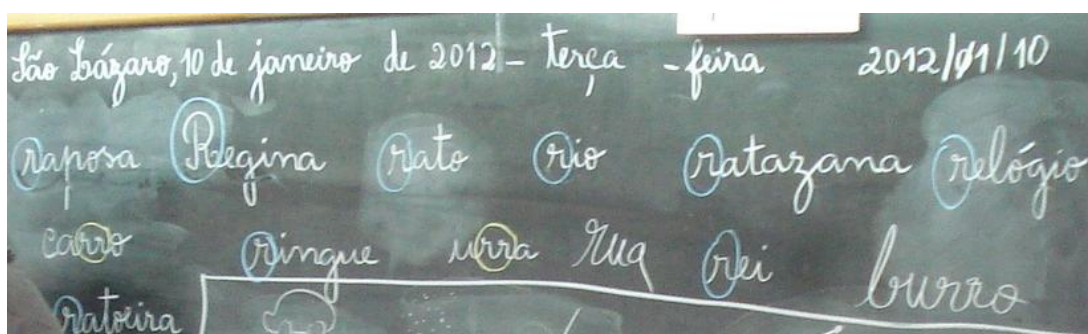 São Lázaro, 10 de janeiro de 2012 - terça - feira 2012/01/10
raposa Regina rato rio ratazana relógio
carro ringue urra rua rei burro
ratoeira